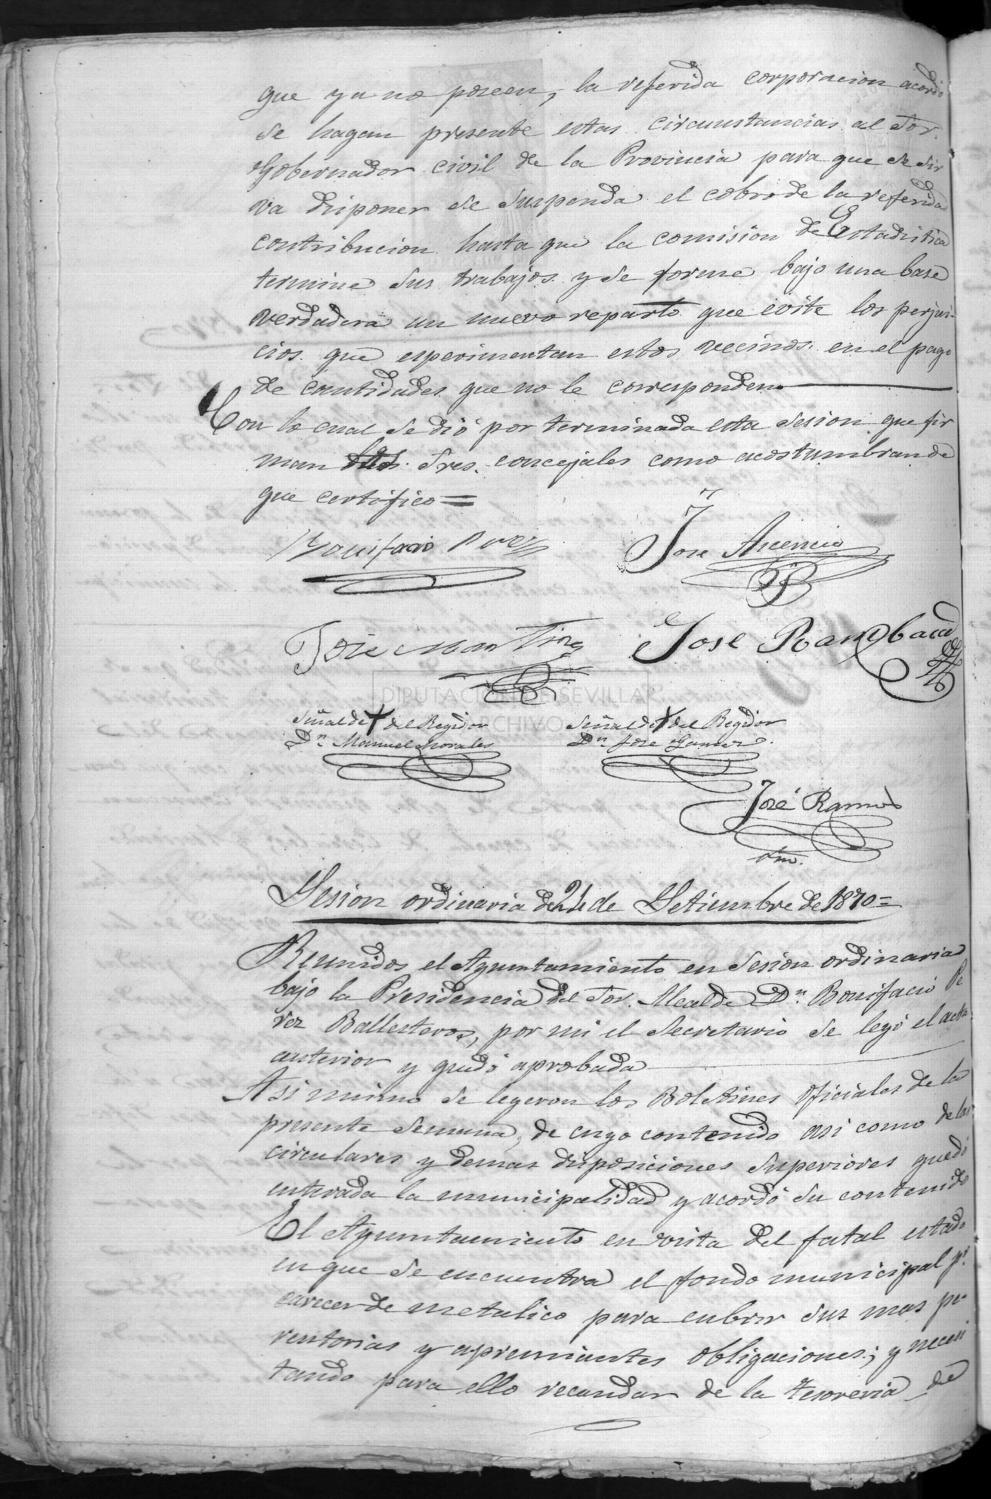 que ya no poseen, la referida corporacion acordó
se hagan presente estas circunstancias al Sor.
Gobernador civil de la Provincia para que se sir
va disponer se suspenda el cobro de la referida
contribucion hasta que la comision de Estadistica
termine sus trabajos y se forme bajo una base
verdadera un nuevo reparto que evite los perjui-
cios que esperimentan estos vecinos en el pago
de cantidades que no le corresponden
Con lo cual se dió por terminada esta sesion que fir
man Sres. concejales como acostumbran de
que certifico=
Bonifacio Perez
Jose Asencio
José Martinez
Jose Rambaud
Señal de + del Regidor
Dn Manuel Morales
Señal de + del Regidor
Dn Jose Gomez
José Ramos
Srio.
DIPUTACION DE SEVILLA
ARCHIVO
Sesion ordinaria de 21 de Setiembre de 1870=
Reunidos el Ayuntamiento en sesion ordinaria
bajo la Presidencia del Sor. Alcalde Dn Bonifacio Pe
rez Ballesteros, por mi el Secretario se leyó el acta
anterior y quedó aprobada
Asi mismo se leyeron los Boletines oficiales de la
presente semana, de cuyo contenido asi como de las
circulares y demas disposiciones superiores quedó
enterada la municipalidad y acordó su contenido
El Ayuntamiento en vista del fatal estado
en que se encuentra el fondo municipal pr.
carecer de metalico para cubrir sus mas pe-
rentorias y apremiantes obligaciones; y necesi
tando para ello recaudar de la tesoreria de